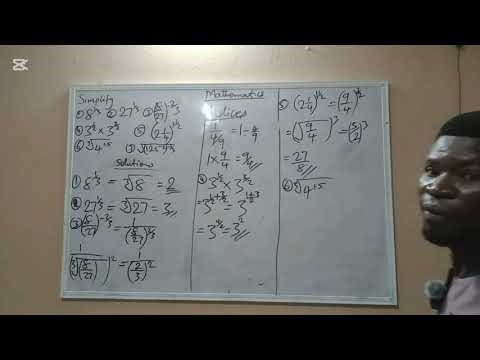 CapCut
Simplify
① 8^⅓ ② 27^⅓ ③ (8/27)^-⅔
④ 3^½ × 3^3/2 ⑤ (2¼)^½
⑥ 4^+5
Solutions
① 8^⅓ = ∛8 = 2
② 27^⅓ = ∛27 = 3
③ (8/27)^-⅔ = 1/(8/27)^⅔
1/(∛(8/27))² = 1/(2/3)²
Mathematics
Indices
1/(4/9) = 1 ÷ 4/9
1 × 9/4 = 9/4
④ 3^½ × 3^3/2
= 3^(½+3/2) = 3^((1+3)/2)
= 3^4/2 = 3² =
⑤ (2¼)^½ = (9/4)^½
= (√(9/4))³ =
= 27/8
⑥ 4^+5